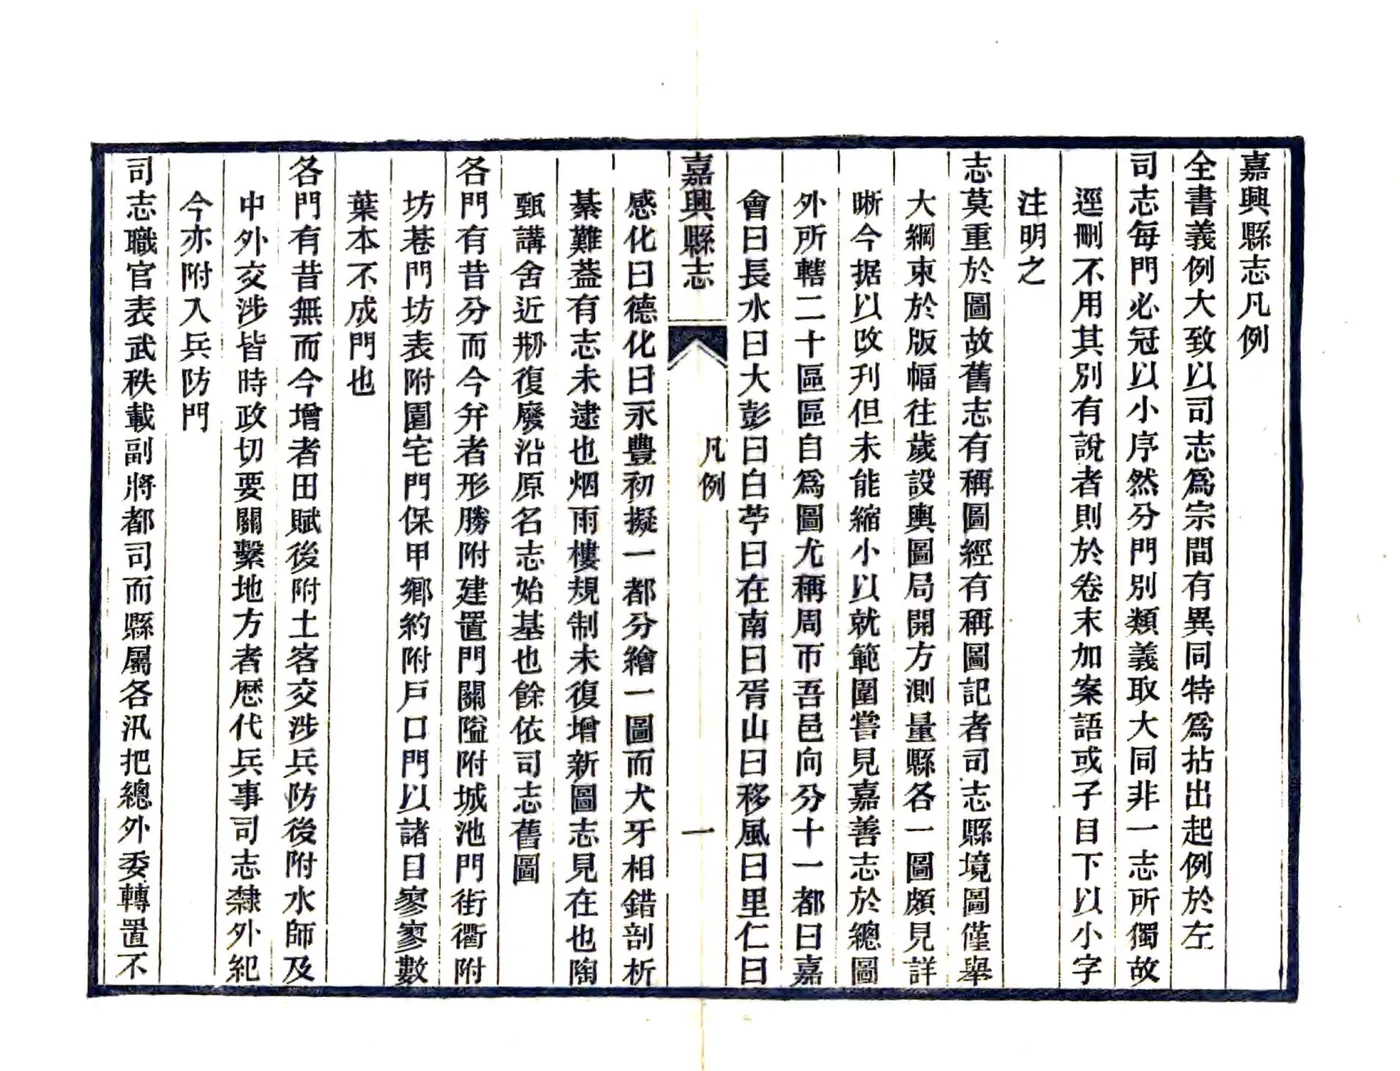 嘉興縣志凡例
全書義例大致以司志爲宗間有異同特爲拈出起例於左
司志每門必冠以小序然分門別類義取大同非一志所獨故
逕刪不用其別有說者則於卷末加案語或子目下以小字
注明之
志莫重於圖故舊志有稱圖經有稱圖記者司志縣境圖僅舉
大綱束於版幅往歲設輿圖局開方測量縣各一圖頗見詳
晰今据以改刊但未能縮小以就範圍嘗見嘉善志於總圖
外所轄二十區區自爲圖尤稱周帀吾邑向分十一都曰嘉
會曰長水曰大彭曰白苧曰在南曰胥山曰移風曰里仁曰
嘉興縣志
凡例
一
感化曰德化曰永豐初擬一都分繪一圖而犬牙相錯剖析
綦難葢有志未逮也烟雨樓規制未復增新圖志見在也陶
甄講舍近剏復廢沿原名志始基也餘依司志舊圖
各門有昔分而今弁者形勝附建置門關隘附城池門街衢附
坊巷門坊表附園宅門保甲鄉約附戶口門以諸目寥寥數
葉本不成門也
各門有昔無而今增者田賦後附土客交涉兵防後附水師及
中外交涉皆時政切要關繫地方者歷代兵事司志隸外紀
今亦附入兵防門
司志職官表武秩載副將都司而縣屬各汛把總外委轉置不